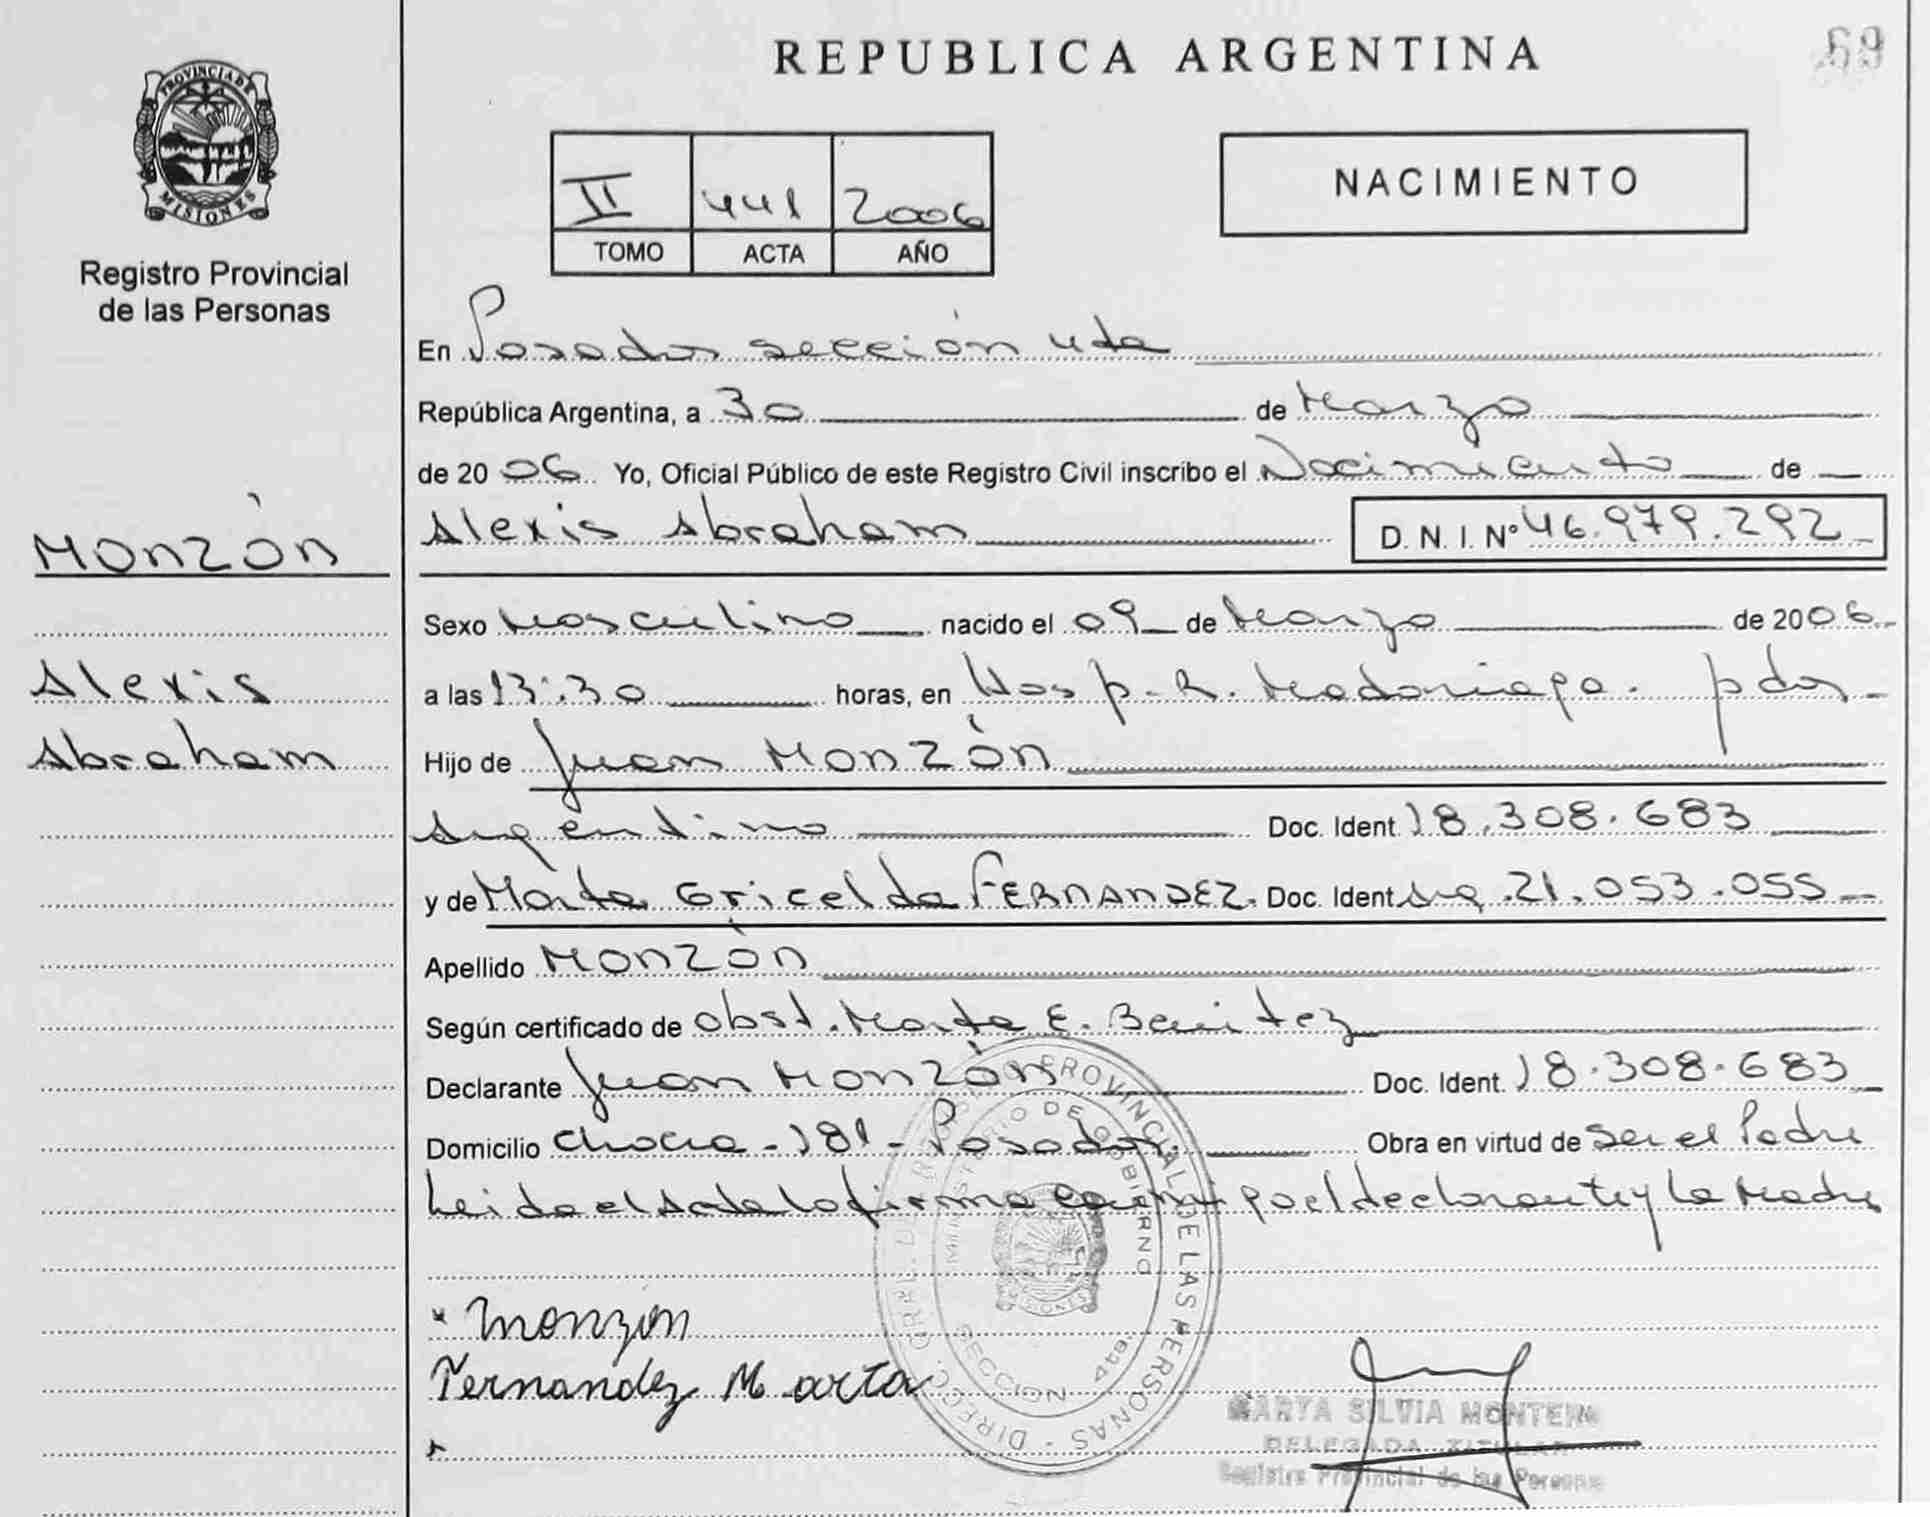 REPUBLICA ARGENTINA
69
PROVINCIA DE
MISIONES
Registro Provincial
de las Personas
II 441 2006
TOMO ACTA AÑO
NACIMIENTO
En Posadas sección 4ta
República Argentina, a 30 de Marzo
de 2006 Yo, Oficial Público de este Registro Civil inscribo el Nacimiento de
Alexis Abraham D. N. I. Nº 46.979.292
MONZÓN
Sexo Masculino nacido el 09 de Marzo de 2006
Alexis
a las 13:30 horas, en Hosp. R. Madariaga. pdas
Abraham
Hijo de Juan MONZÓN
Argentino Doc. Ident. 18.308.683
y de Marta Gricelda FERNANDEZ. Doc. Ident. Arg. 21.053.055
Apellido MONZÓN
Según certificado de obst. Marta E. Benitez
Declarante Juan MONZÓN Doc. Ident. 18.308.683
Domicilio Chacra - 181 - Posadas Obra en virtud de ser el Padre
Leida el Acta la firma conmigo el declarante y la Madre
* Monzón
Fernandez Marta
DIRECC. GRAL. DEL REGISTRO PROVINCIAL DE LAS PERSONAS
MINISTERIO DE GOBIERNO
SECCION 4ta.
MISIONES
MARTA SILVIA MONTERO
DELEGADA TITULAR
Registro Provincial de las Personas